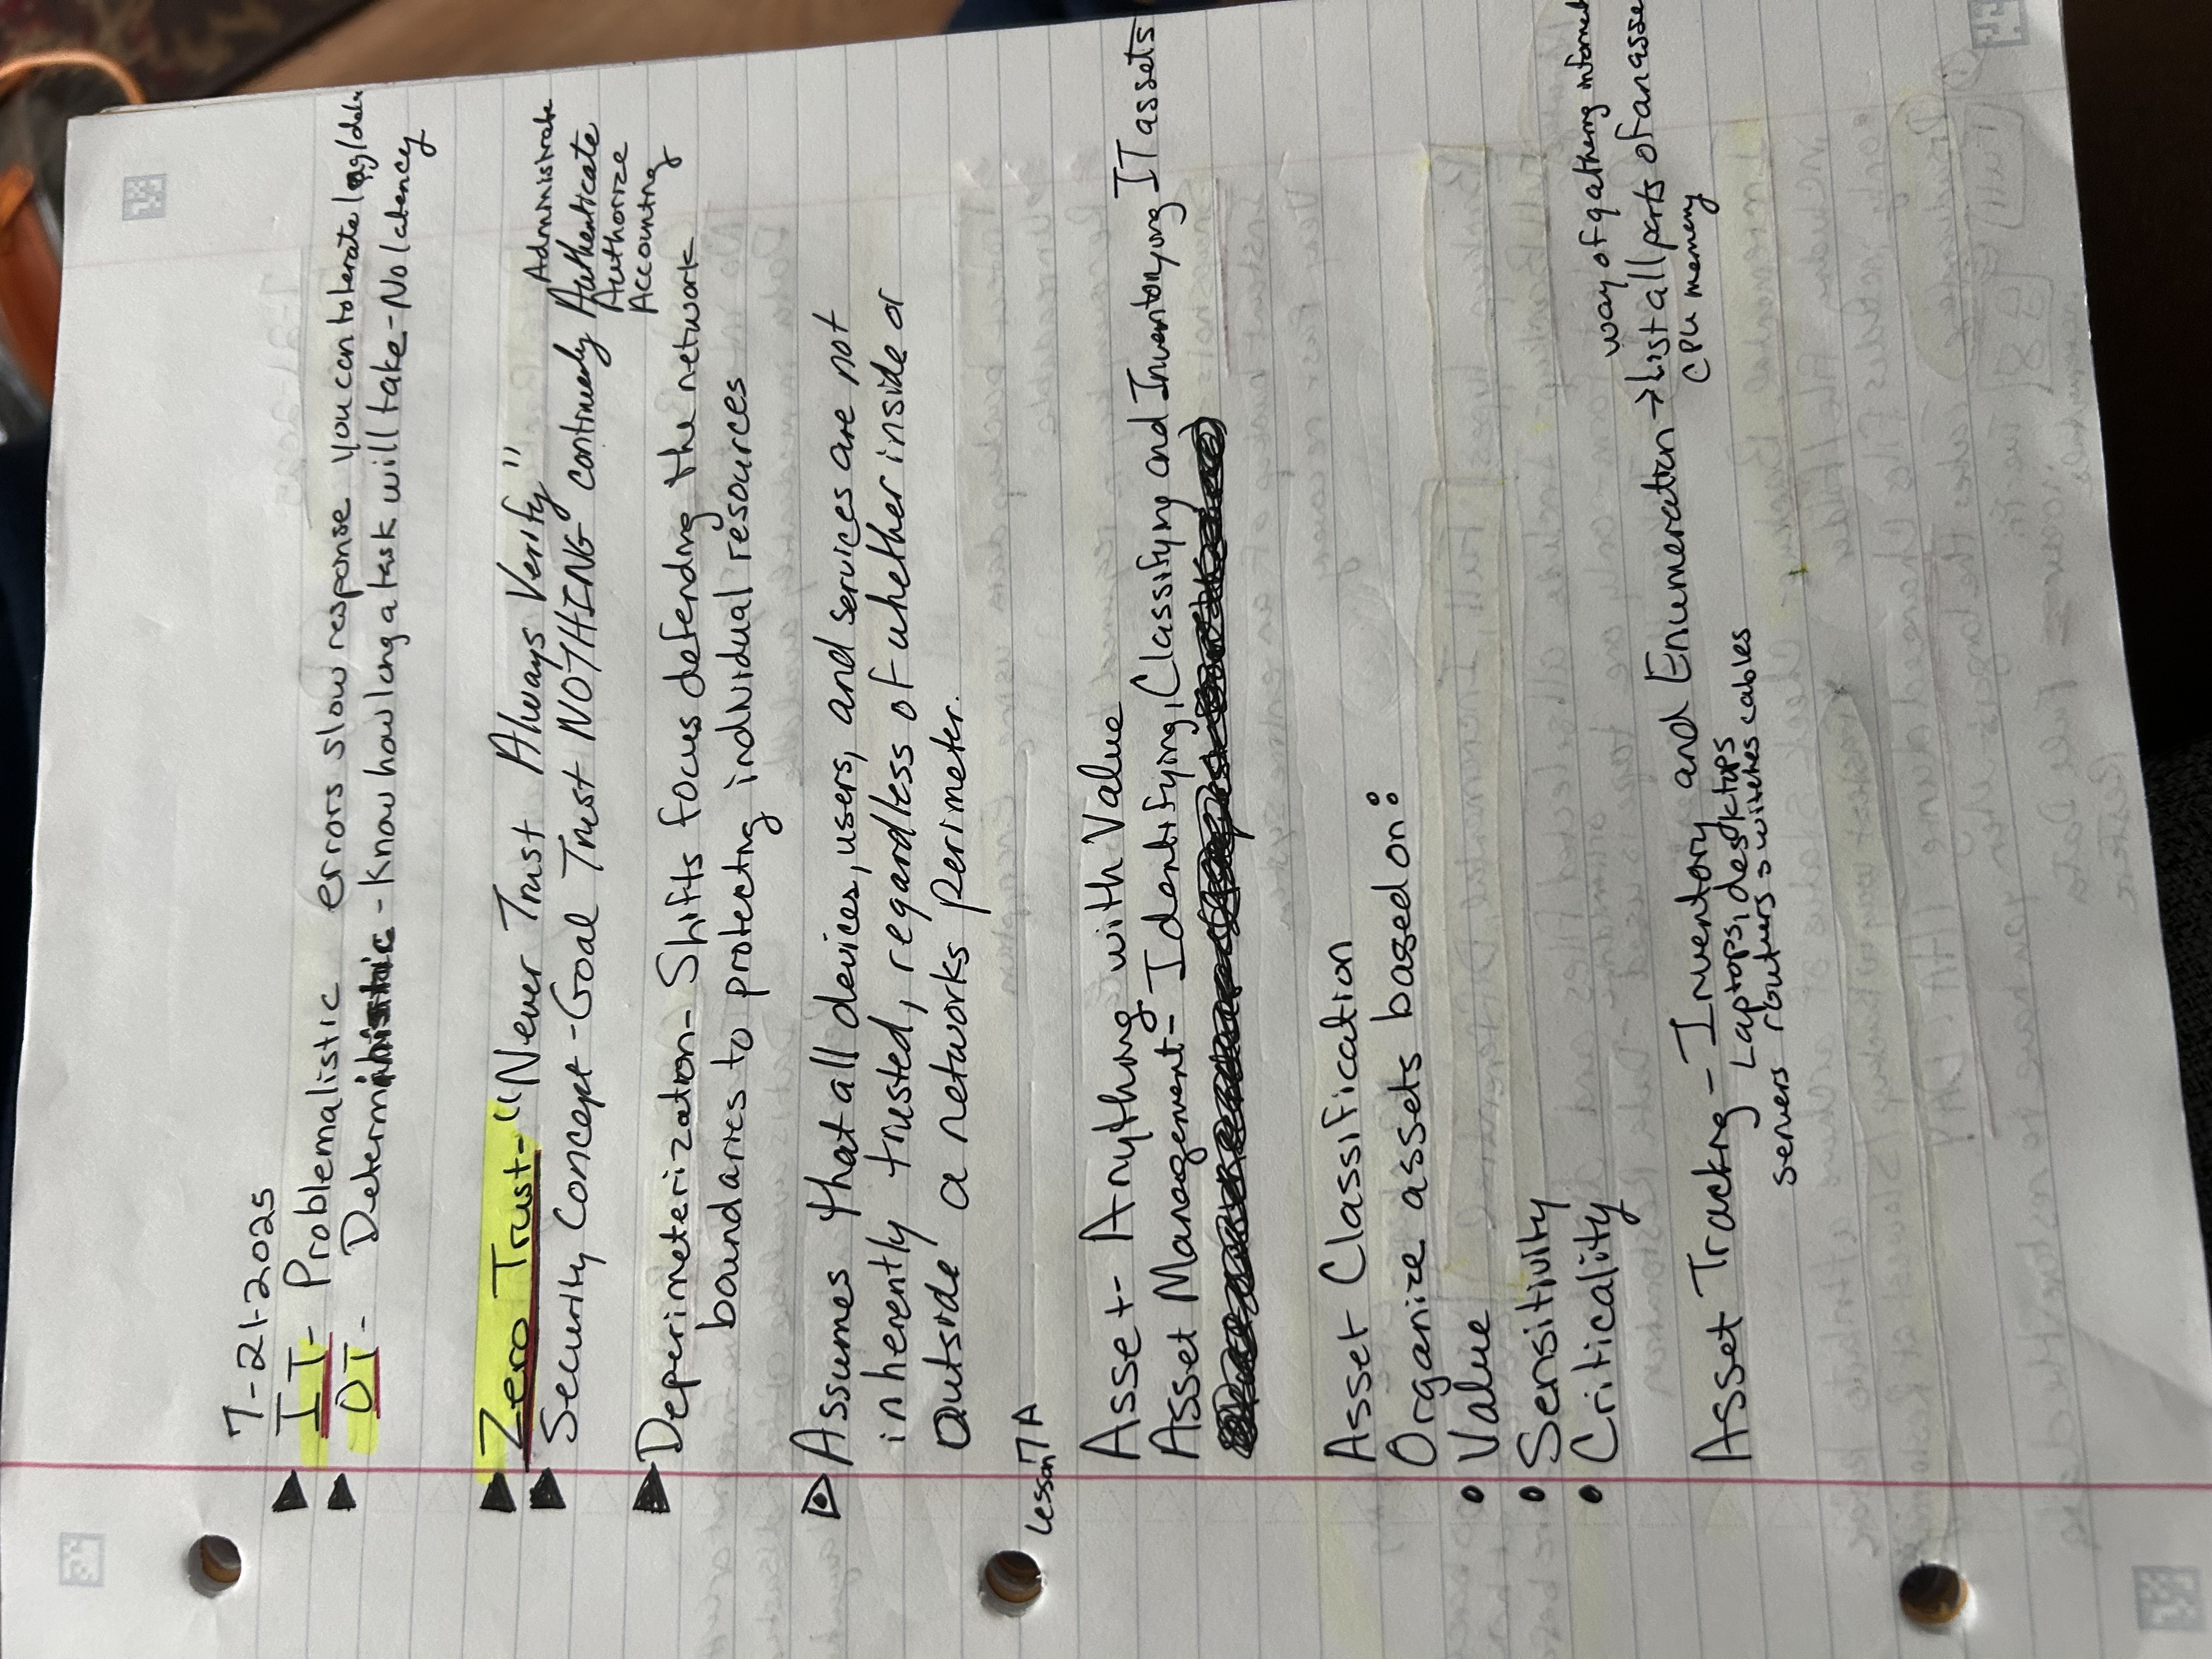 7-21-2025
IT- Problemalistic errors slow response you can tolerate lag/
OT- Deterministic - Know how long a task will take - No latency
Zero Trust- "Never Trust Always Verify"
Administrate
Security Concept - Goal Trust NOTHING continuously Authenticate
Authorize
Accounting
Deperimeterization- Shifts focus defending the network
boundaries to protecting individual resources
Assumes that all devices, users, and services are not
inherently trusted, regardless of whether inside or
outside a networks perimeter.
Lesson 7A
Asset- Anything with Value
Asset Management- Identifying, Classifying and Inventorying IT assets
Asset Classification
Organize assets based on:
• Value
• Sensitivity
• Criticality
way of gathering
Asset Tracking - Inventory and Enumeration → List all parts of an
CPU memory
Laptops, desktops
servers routers switches cables